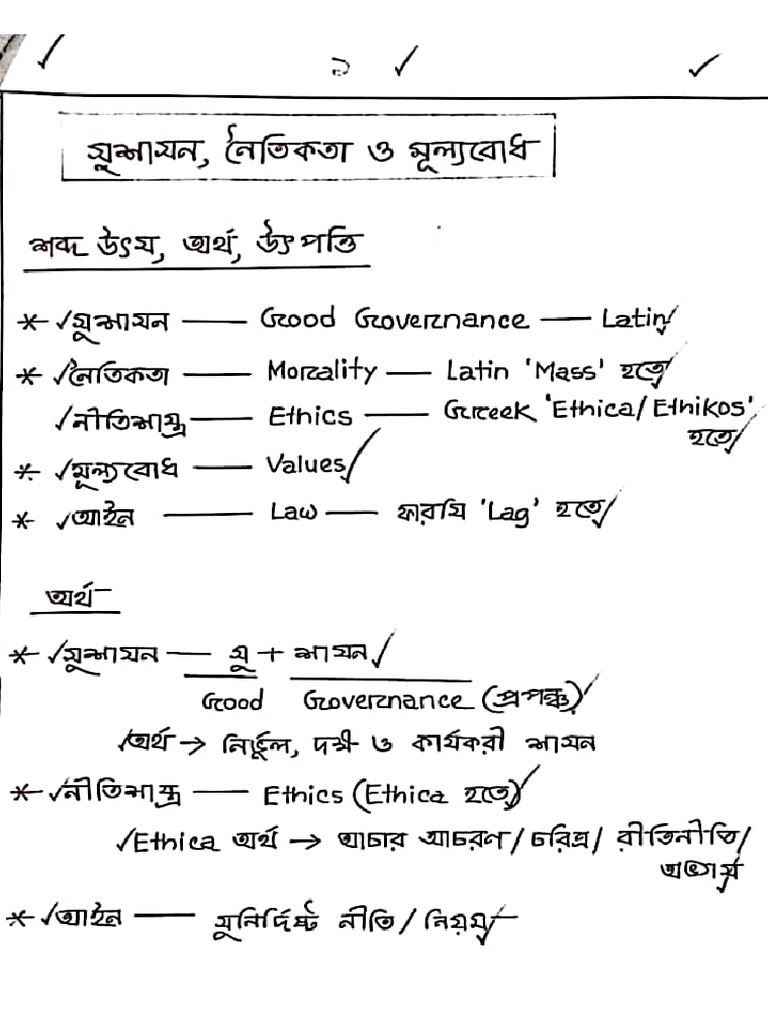 ২
সুশাসন, নৈতিকতা ও মূল্যবোধ
শব্দ উৎস, অর্থ, উৎপত্তি
* ✓সুশাসন — Good Governance — Latin✓
* ✓নৈতিকতা — Morality — Latin 'Mass' হতে✓
✓নীতিশাস্ত্র — Ethics — Greek 'Ethica/Ethikos'
হতে✓
* ✓মূল্যবোধ — Values✓
* ✓আইন — Law — ফারসি 'Lag' হতে✓
অর্থ
* ✓সুশাসন — সু + শাসন✓
Good Governance (প্রপঞ্চ)✓
✓অর্থ → নির্ভুল, দক্ষ ও কার্যকরী শাসন
* ✓নীতিশাস্ত্র — Ethics (Ethica হতে)✓
✓Ethica অর্থ → আচার আচরণ/চরিত্র/রীতিনীতি/
অভ্যাস
* ✓আইন — সুনির্দিষ্ট নীতি/নিয়ম✓